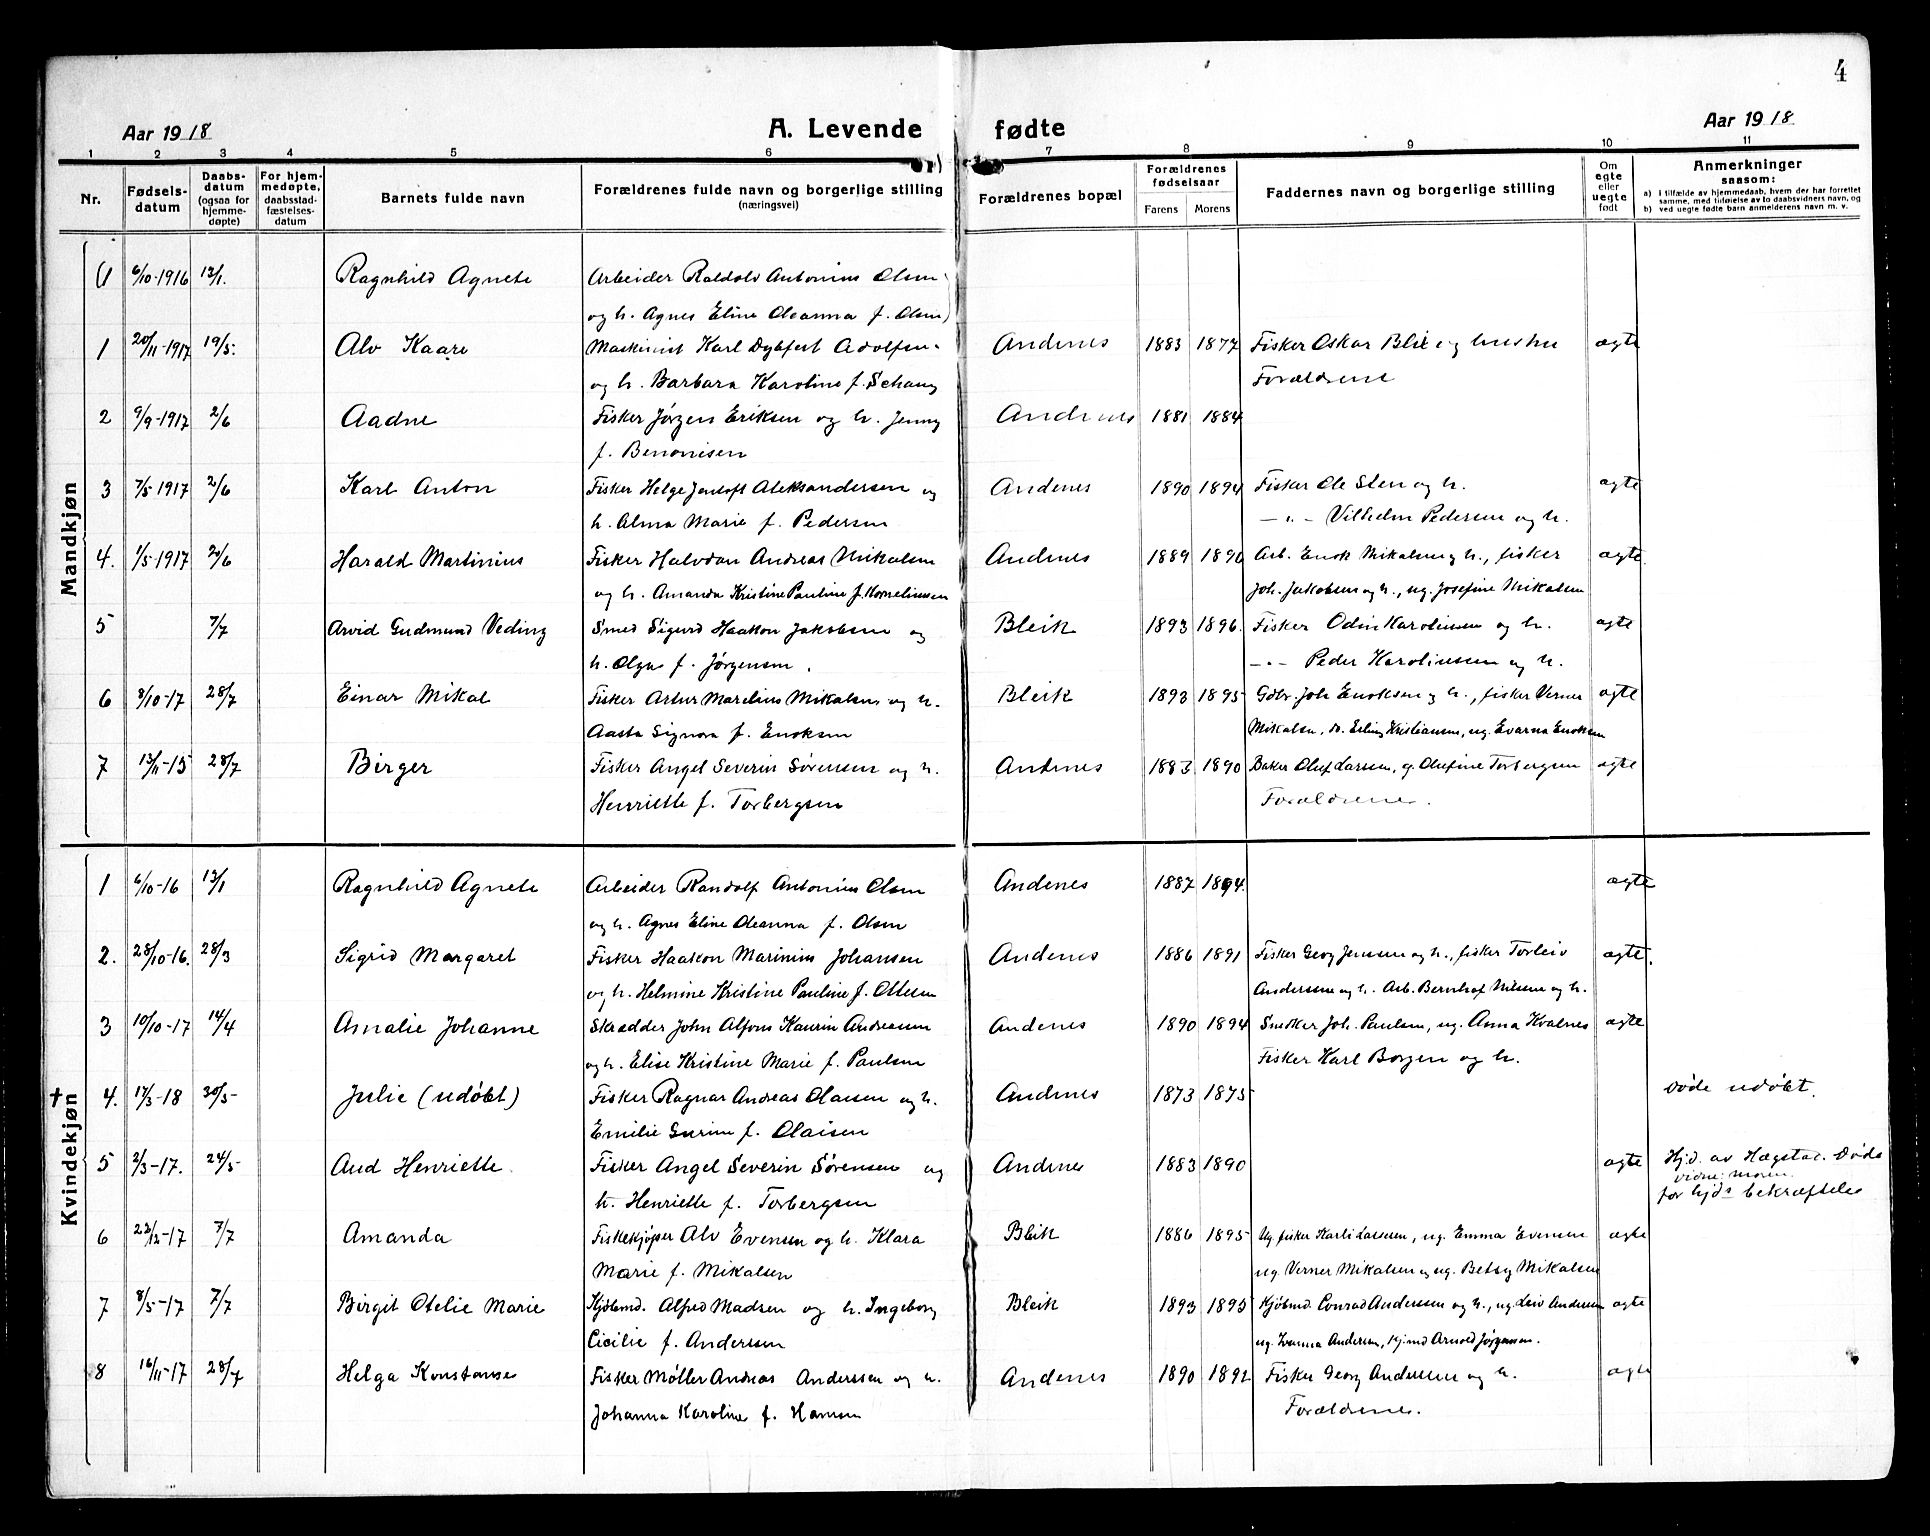 4
Aar 1918 A. Levende fødte Aar 1918
1 2 3 4 5 6 7 8 9 10 11
Nr. Fødselsdatum Daabsdatum (ogsaa for hjemmedøpte) For hjemmedøpte, daabsstadfæstelsesdatum Barnets fulde navn Forældrenes fulde navn og borgerlige stilling (næringsvei) Forældrenes bopæl Forældrenes fødselsaar Farens Morens Faddernes navn og borgerlige stilling Om egte eller uegte født Anmerkninger saasom:
a) I tilfælde av hjemmedaab, hvem der har forrettet samme, med tilføielse av to daabsvidners navn, og
b) ved uegte fødte barn anmelderens navn m. v.
Mandkjøn
6/10-1916 13/1. Ragnhild Agnete Arbeider Antonius Olsen
og h. Agnes Eline Oleanna f. Olsen)
1 20/11-1917 19/5. Alv Kaare Maskinist Karl Dybfest Adolfsen Andenes 1883 1877 Fisker Oskar Blix og hustru ægte
og h. Barbara Karoline f. Schang Forældrene
2 9/9-1917 2/6 Aadne Fisker Jørgen Eriksen og h. Jenny Andenes 1881 1884
f. Benonisen
3 7/5 1917 2/6 Karl Anton Fisker Helge Jentoft Aleksandersen og Andenes 1890 1894 Fisker Ole Sten og h. ægte
h. Alma Marie f. Pedersen — " — Vilhelm Pedersen og h.
4. 1/5-1917 2/6 Harald Martinius Fisker Halvdan Andreas Mikalsen Andenes 1889 1890 Arb. Enok Mikalsen og h., fisker ægte.
og h. Amanda Kristine Pauline f. Korneliussen Joh. Jakobsen og h., ug. Josefine Mikalsen
5 7/7 Arvid Gudmund Veding Smed Sigurd Haakon Jakobsen og Bleik 1893 1896. Fisker Odin Karolinssen og h. ægte
h. Olga f. Jørgensen. — " — Peder Karolinssen og h.
6 8/10-17 28/7 Einar Mikal Fisker Artur Marelius Mikalsen og h. Bleik 1893 1895 Gdbr. Joh Enoksen og h., fisker Verner ægte
Aasta Signora f. Enoksen Mikalsen, Erling Kristiansen, ug. Evarna Enoksen
7 13/11-15 28/7 Birger Fisker Angel Severin Sørensen og h. Andenes 1883 1890 Baker Oluf Larsen, g. Olefine Torbergsen ægte
Henriette f. Torbergsen Forældrene.
Kvindekjøn
1 6/10-16 13/1 Ragnhild Agnete Arbeider Randolf Antonius Olsen Andenes 1887 1894. ægte
og h. Agnes Eline Oleanna f. Olsen
2. 28/10-16. 28/3 Sigrid Margaret Fisker Haakon Marinius Johansen Andenes 1886 1891 Fisker Georg Jenssen og h., fisker Torleiv ægte.
og h. Helmine Kristine Pauline f. Ottesen Anderssen og h. Arb. Bernhof Nilsen og h.
3 10/10-17 14/4 Amalie Johanne Skrædder John Alfons Kaurin Andreasen Andenes 1890 1894 Snekker Joh. Paulsen, ug. Anna Kvalnes ægte
og h. Elise Kristine Marie f. Paulsen Fisker Karl Borgen og h.
† 4. 17/3-18 30/5- Julie (udøbt) Fisker Ragnar Andreas Olaisen og h. Andenes 1873 1875 Døde udøbt.
Emilie Gurine f. Olaisen
5 2/3-17. 24/5- Aud Henriette. Fisker Angel Severin Sørensen og Andenes 1883 1890 ægte Hjd. av Døde
h. Henriette f. Torbergsen vidne: moren
før hjds bekræftelse
6 22/12-17 7/7 Amanda Fiskekjøper Alv Evensen og h. Klara Bleik 1886 1895 Ug. fisker Karli Larssen, ug. Emma Evensen ægte
Marie f. Mikalsen ug. Verner Mikalsen og ug. Betsy Mikalsen
7 8/5-17 7/7 Birgit Otelie Marie Kjøbmd. Alfred Madsen og h. Ingeborg Bleik 1893 1895 Kjøbmd. Conrad Anderssen og h., ug. Leiv Andersen ægte
Cicilie f. Anderssen ug. Andersen, Arnold Jørgensen.
8 16/11-17 28/7 Helga Konstanse Fisker Møller Andreas Anderssen og h. Andenes 1890 1892 Fisker Georg Anderssen og h. ægte
Johanna Karoline f. Hansen Forældrene.